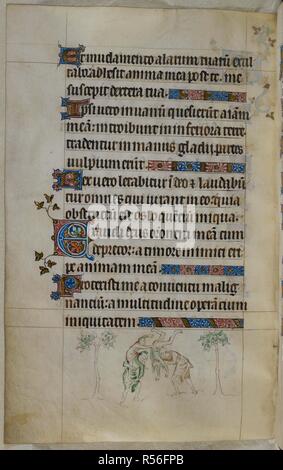 Et in uelamento alarum tuarum exul
tabo adhesit anima mea post te: me
suscepit dextera tua.
Ipsi uero in uanum quesierunt aīam
meam: introibunt in inferiora terre
tradentur in manus gladii partes
uulpium erunt.
Rex uero letabitur in deo laudabun
tur omnes qui iurant in eo: quia
obstructum est os loquentium iniqua.
Exaudi deus orationem meam cum
deprecor: a timore inimici eri
pe animam meam.
Protexisti me a conuentu malig
nancium: a multitudine operancium
iniquitatem.
alamy
R56FPB